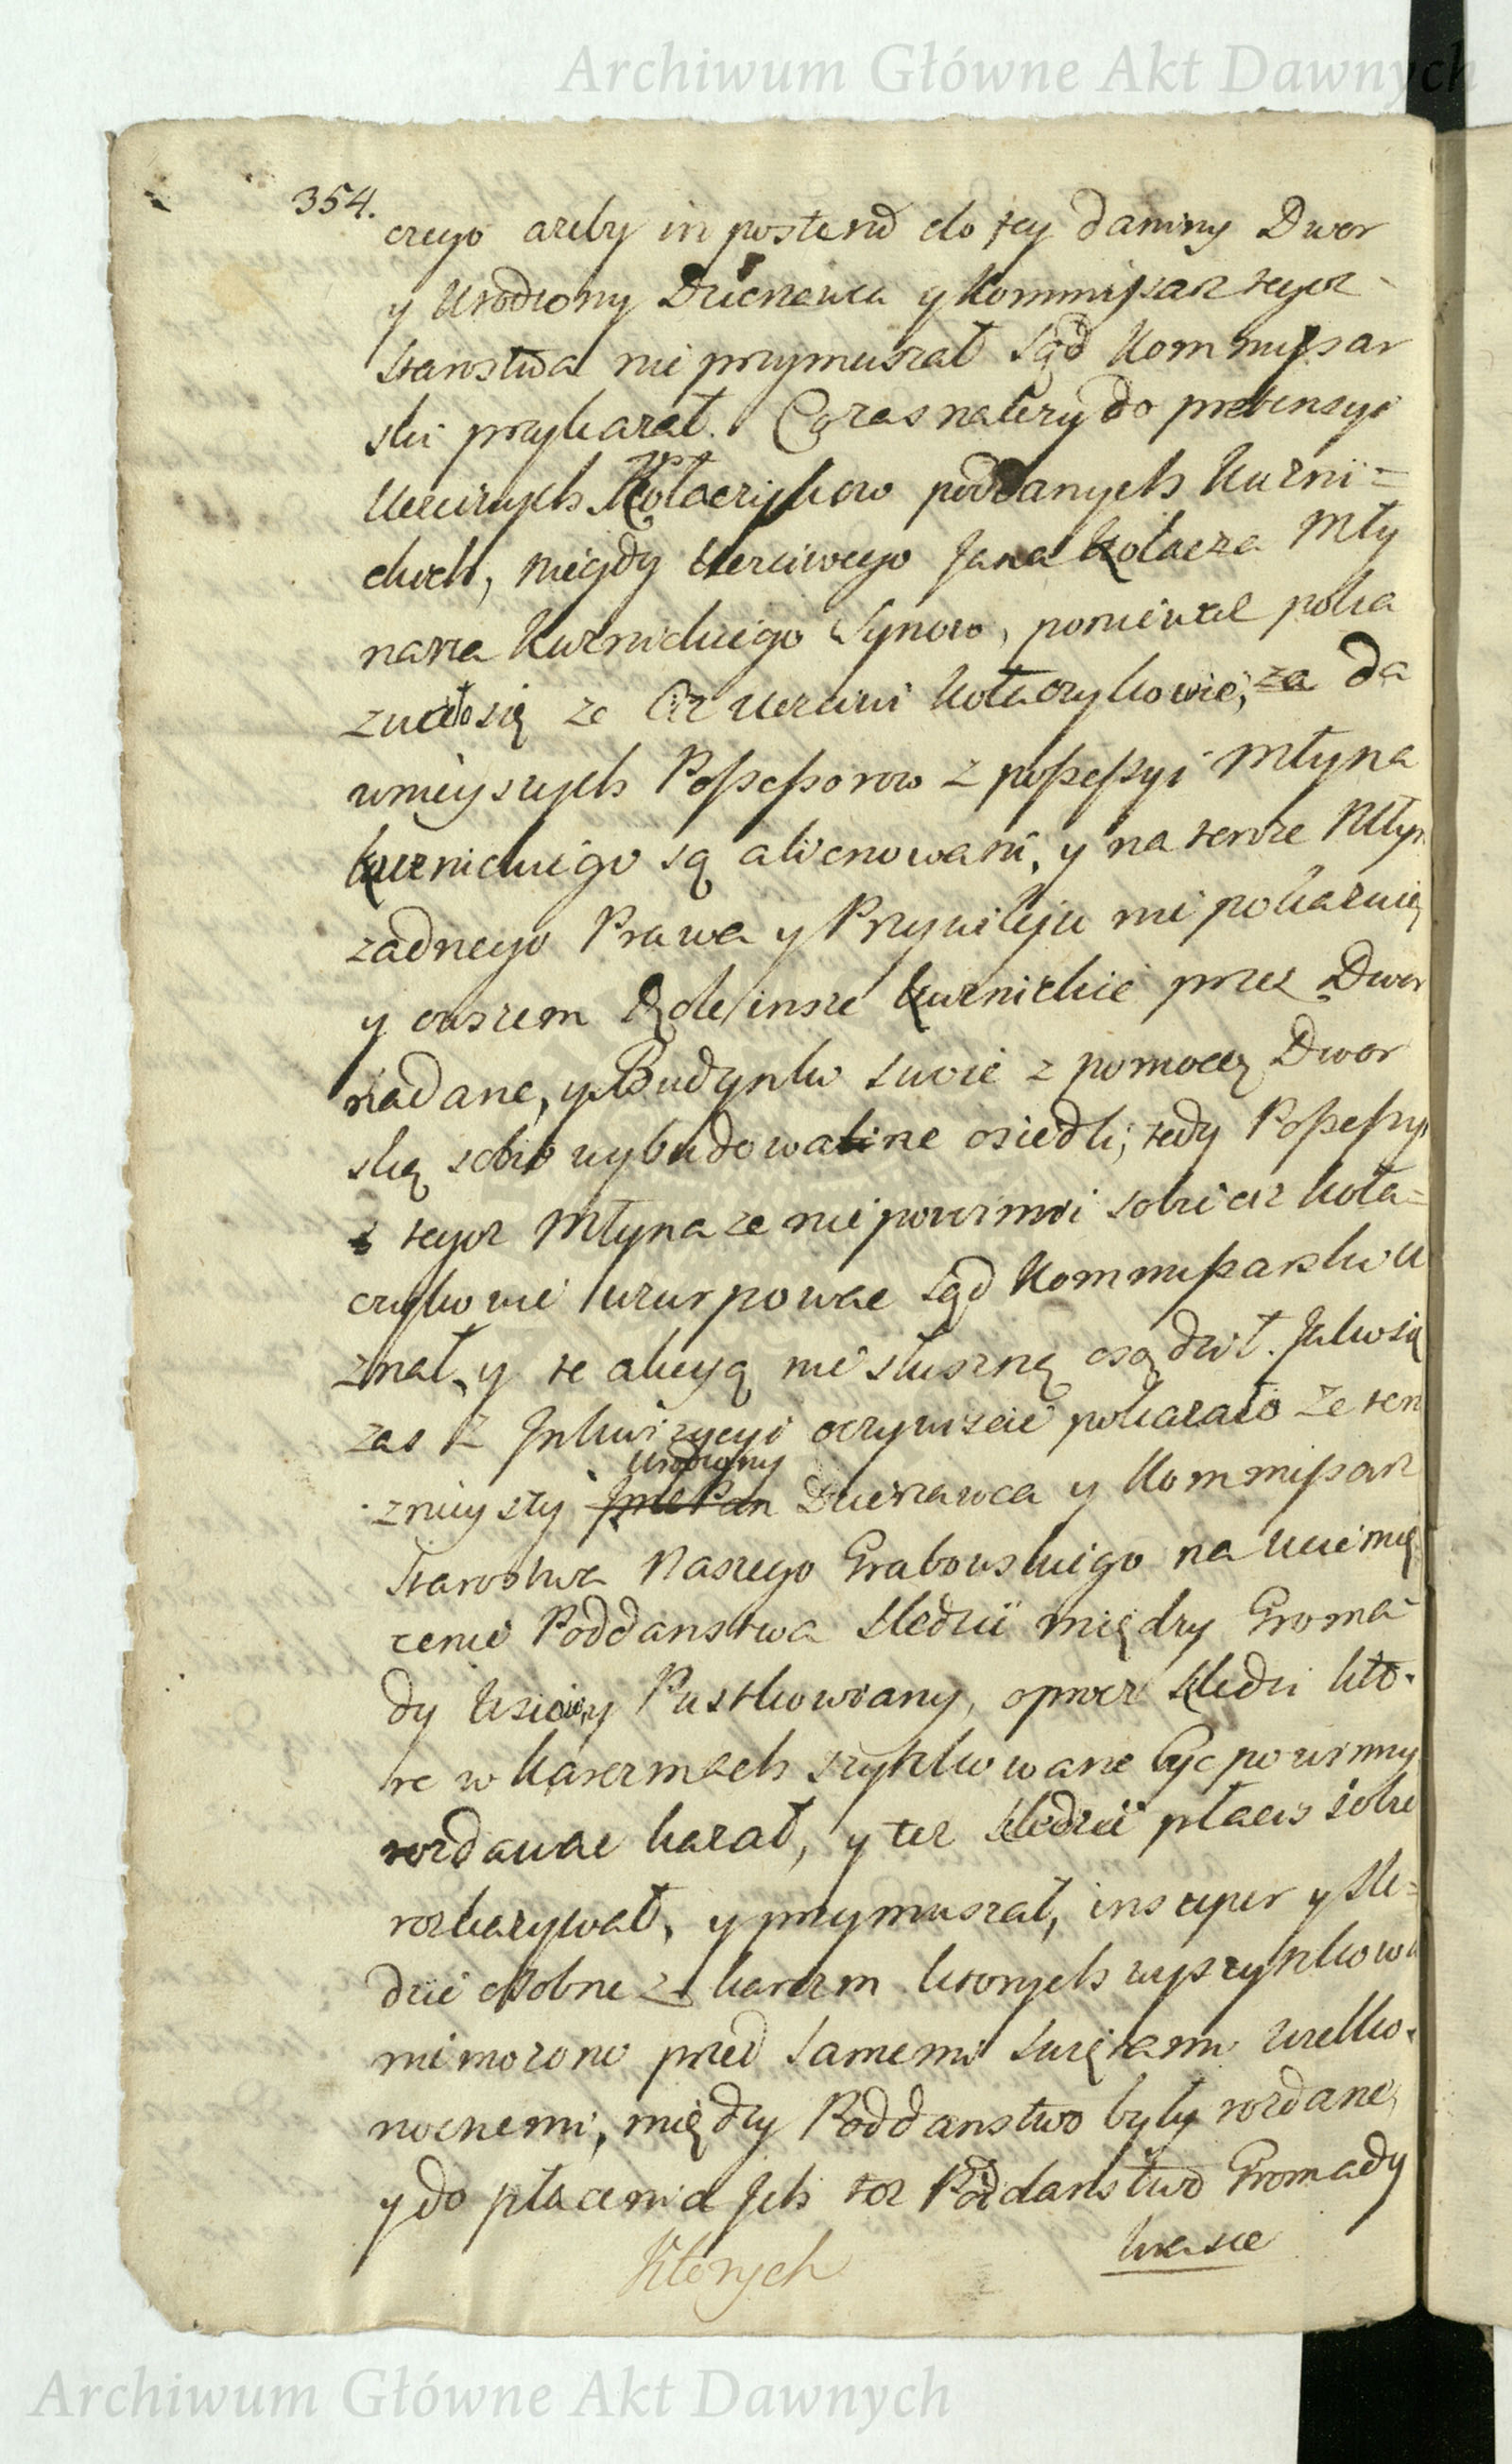 Archiwum Główne Akt Dawnych
354.
czego azeby in posterũ do tey daniny Dwor
y Urodzony Dzierzawca y Kommissarz tegoz
Starostwa nie przymuszał Sąd Kommissar
ski przykazał. Co zas nalezy do pretensyi
Uczciwych Kołaczykow poddanych Kuzni=
ckich, niegdy Uczciwego Jana Kołacza Mły
narza Kuznickiego Synow, poniewaz poka
zuie się ze ciz Uczciwi Kołaczykowie, za da
wnieyszych Possessorow z possessyi Młyna
Kuznickiego są alienowani, y na tenze Młyn
zadnego Prawa y Przywileju nie pokazuią
y owszem Role insze Kuznickie przez Dwor
nadane, y Budynki swoie z pomocą Dwor
ską sobie wybudowaline osiedli; tedy Possessyi
tegoz Młyna ze nie powinni sobie ciz Koła=
czykowie uzurpowac Sąd Kommissarski u
znał, y te akcyą nie słuszną osądził. Jako się
zas z Inkwizycyi oczywiscie pokazało ze ten
znieyszy JmćPan Urodzony Dzierzawca y Kommissarz
Starostwa Naszego Grabowskiego na uciemię
zenie Poddanstwa Sledzie między Groma
dy Usiowy Pustkowiany, oprocz Sledzi kto-
re w karczmach szynkowane byc powinny
rozdawac kazał, y tez sledzie płacic sobie
rozkazywał, y przymuszał, insuper y Sle=
dzie osobne z karczm ktorych wyszynkowa
nie mozono przed samemi Swiętami Wielko-
nocnemi, między Poddanstwo były rozdane,
y do płacenia Jch toz Poddanstwo Gromady
Ktorych
wasce
Archiwum Główne Akt Dawnych